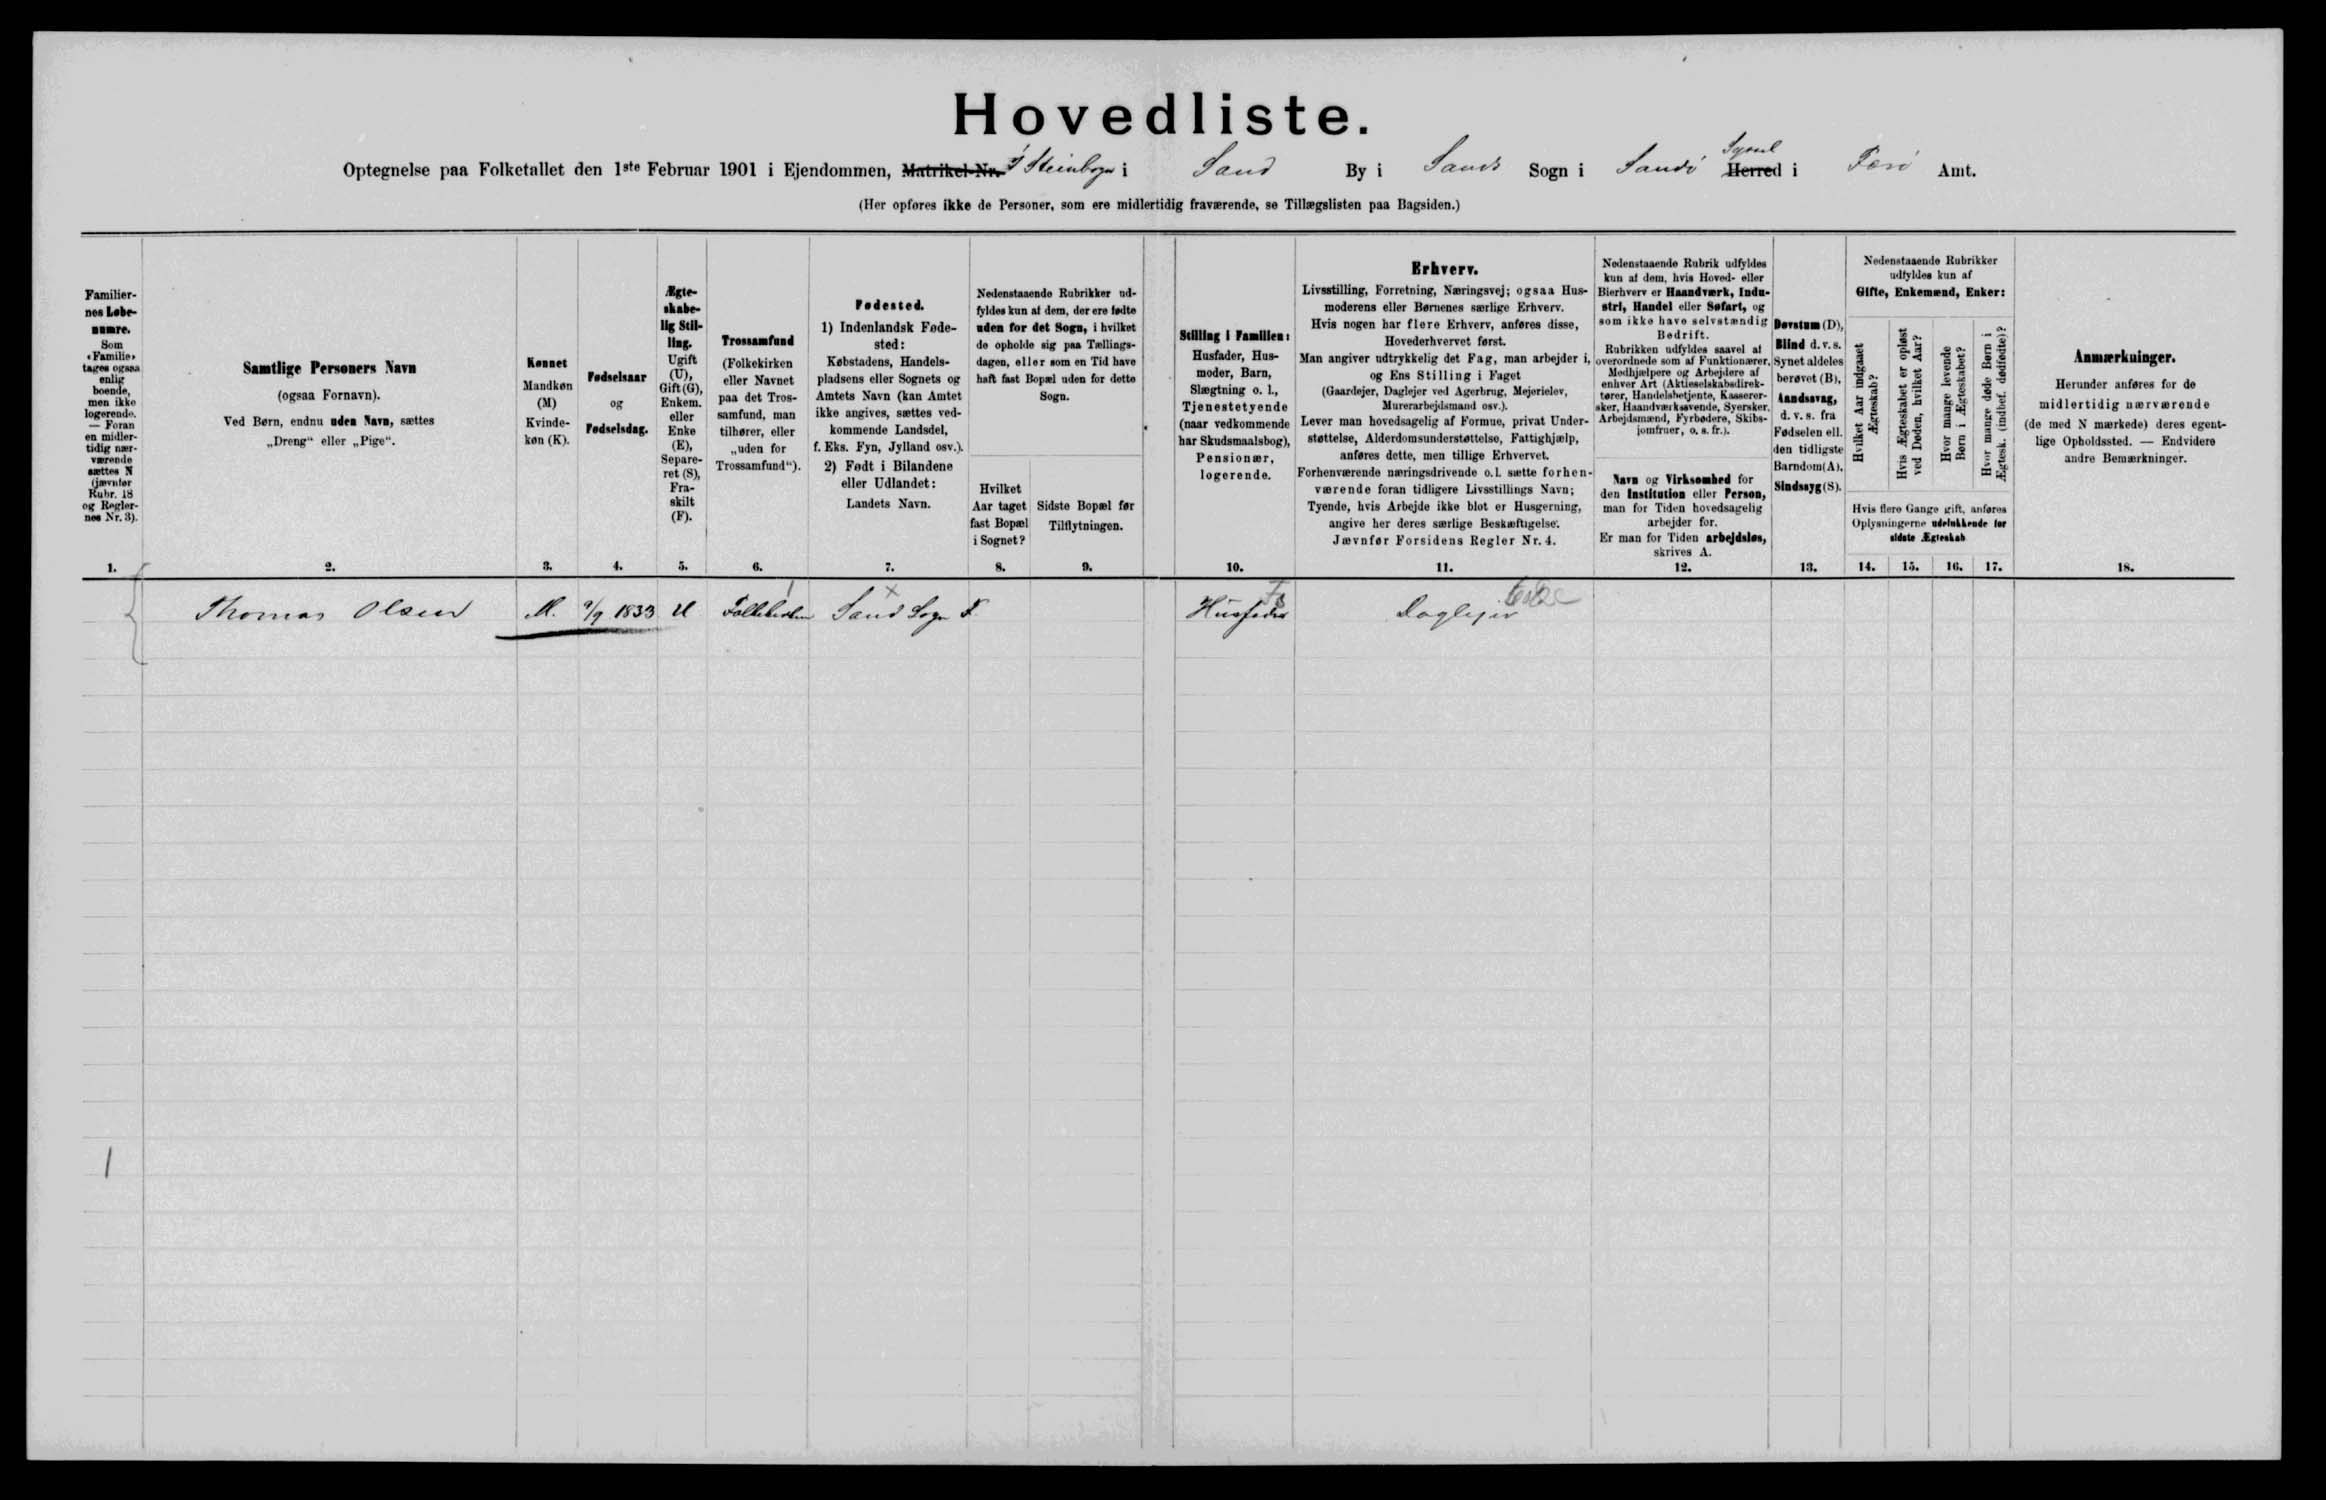 Hovedliste.
Syssel
Optegnelse paa Folketallet den 1ste Februar 1901 i Ejendommen, Matrikel-Nr. í Steinbogu i Sand By i Sands Sogn i Sandö Herred i Færö Amt.
(Her opføres ikke de Personer, som ere midlertidig fraværende, se Tillægslisten paa Bagsiden.)
Familier-
nes Løbe-
numre.
Som
«Familie»
tages ogsaa
enlig
boende,
men ikke
logerende.
— Foran
en midler-
tidig nær-
værende
sættes N
(jævnfør
Rubr. 18
og Regler-
nes Nr. 3).
1.
Samtlige Personers Navn
(ogsaa Fornavn).
Ved Børn, endnu uden Navn, sættes
„Dreng“ eller „Pige“.
2.
Kønnet
Mandkøn
(M)
Kvinde-
køn (K).
3.
Fødselsaar
og
Fødselsdag.
4.
Ægte-
skabe-
lig Stil-
ling.
Ugift
(U),
Gift (G),
Enkem.
eller
Enke
(E),
Separe-
ret (S),
Fra-
skilt
(F).
5.
Trossamfund
(Folkekirken
eller Navnet
paa det Tros-
samfund, man
tilhører, eller
„uden for
Trossamfund“).
6.
Fødested.
1) Indenlandsk Føde-
sted:
Købstadens, Handels-
pladsens eller Sognets og
Amtets Navn (kan Amtet
ikke angives, sættes ved-
kommende Landsdel,
f. Eks. Fyn, Jylland osv.).
2) Født i Bilandene
eller Udlandet:
Landets Navn.
7.
Nedenstaaende Rubrikker ud-
fyldes kun af dem, der ere fødte
uden for det Sogn, i hvilket
de opholde sig paa Tællings-
dagen, eller som en Tid have
haft fast Bopæl uden for dette
Sogn.
Hvilket
Aar taget
fast Bopæl
i Sognet?
8.
Sidste Bopæl før
Tilflytningen.
9.
Stilling i Familien:
Husfader, Hus-
moder, Barn,
Slægtning o. l.,
Tjenestetyende
(naar vedkommende
har Skudsmaalsbog),
Pensionær,
logerende.
10.
Erhverv.
Livsstilling, Forretning, Næringsvej; ogsaa Hus-
moderens eller Børnenes særlige Erhverv.
Hvis nogen har flere Erhverv, anføres disse,
Hovederhvervet først.
Man angiver udtrykkelig det Fag, man arbejder i,
og Ens Stilling i Faget
(Gaardejer, Daglejer ved Agerbrug, Mejerielev,
Murerarbejdsmand osv.).
Lever man hovedsagelig af Formue, privat Under-
støttelse, Alderdomsunderstøttelse, Fattighjælp,
anføres dette, men tillige Erhvervet.
Forhenværende næringsdrivende o.l. sætte forhen-
værende foran tidligere Livsstillings Navn;
Tyende, hvis Arbejde ikke blot er Husgerning,
angive her deres særlige Beskæftigelse.
Jævnfør Forsidens Regler Nr. 4.
11.
Nedenstaaende Rubrik udfyldes
kun af dem, hvis Hoved- eller
Bierhverv er Haandværk, Indu-
stri, Handel eller Søfart, og
som ikke have selvstændig
Bedrift.
Rubrikken udfyldes saavel af
overordnede som af Funktionærer,
Medhjælpere og Arbejdere af
enhver Art (Aktieselskabsdirek-
tører, Handelsbetjente, Kasserer-
sker, Haandværkssvende, Syersker,
Arbejdsmænd, Fyrbødere, Skibs-
jomfruer, o. s. fr.).
Navn og Virksomhed for
den Institution eller Person,
man for Tiden hovedsagelig
arbejder for.
Er man for Tiden arbejdsløs,
skrives A.
12.
Døvstum (D),
Blind d. v. s.
Synet aldeles
berøvet (B),
Aandssvag,
d. v. s. fra
Fødselen ell.
den tidligste
Barndom (A),
Sindssyg (S).
13.
Nedenstaaende Rubrikker
udfyldes kun af
Gifte, Enkemænd, Enker:
Hvilket Aar indgaaet
Ægteskab?
Hvis Ægteskabet er opløst
ved Døden, hvilket Aar?
Hvor mange levende
Børn i Ægteskabet?
Hvor mange døde Børn i
Ægtesk. (indbef. dødfødte)?
Hvis flere Gange gift, anføres
Oplysningerne udelukkende for
sidste Ægteskab
14. 15. 16. 17.
Anmærkninger.
Herunder anføres for de
midlertidig nærværende
(de med N mærkede) deres egent-
lige Opholdssted. — Endvidere
andre Bemærkninger.
18.
Thomas Olsen M. 9/9 1833 U Folkekirken Sand Sogn F. Husfader Daglejer
1